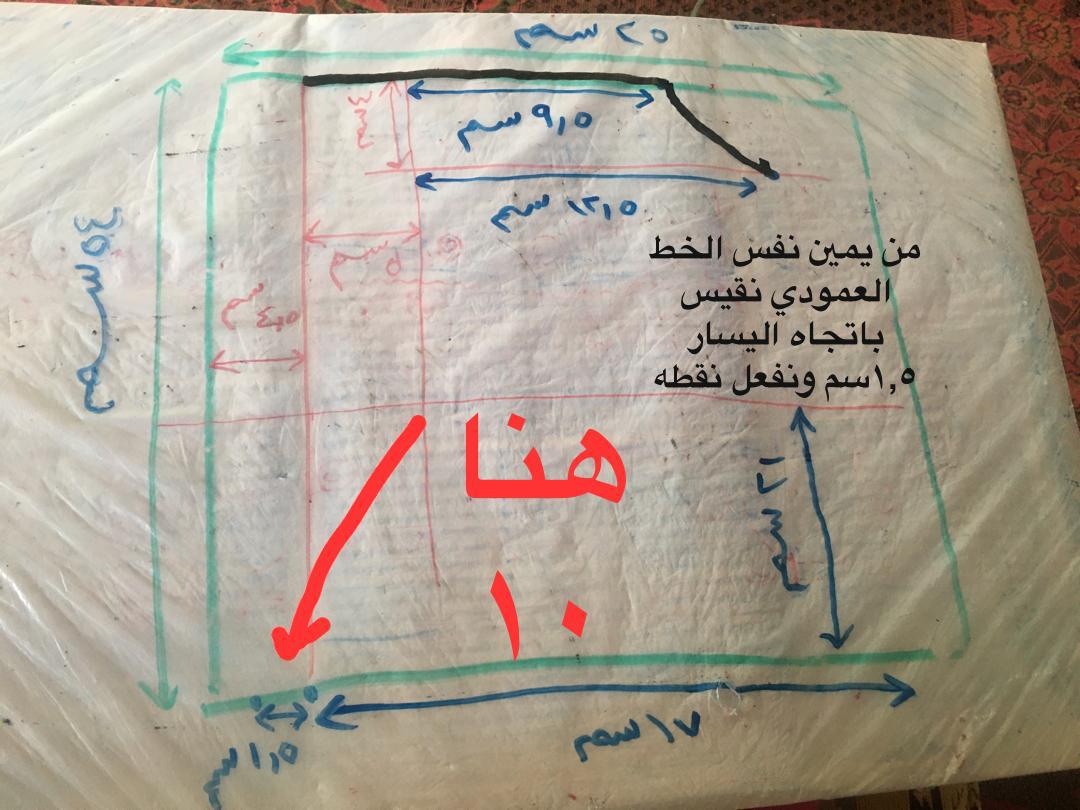 ٢٥ سم
٤سم
٩,٥ سم
١٢,٥ سم
٥ سم
٤,٥ سم
٥٤ سم
من يمين نفس الخط
العمودي نقيس
باتجاه اليسار
١,٥سم ونفعل نقطه
هنا
١٠
٢١ سم
١٧ سم
١,٥ سم